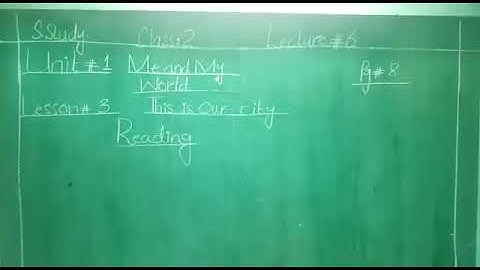 S.Study Class:2 Lecture #6
Unit #1 Me and My
World
Pg# 8
Lesson# 3 This is our city
Reading